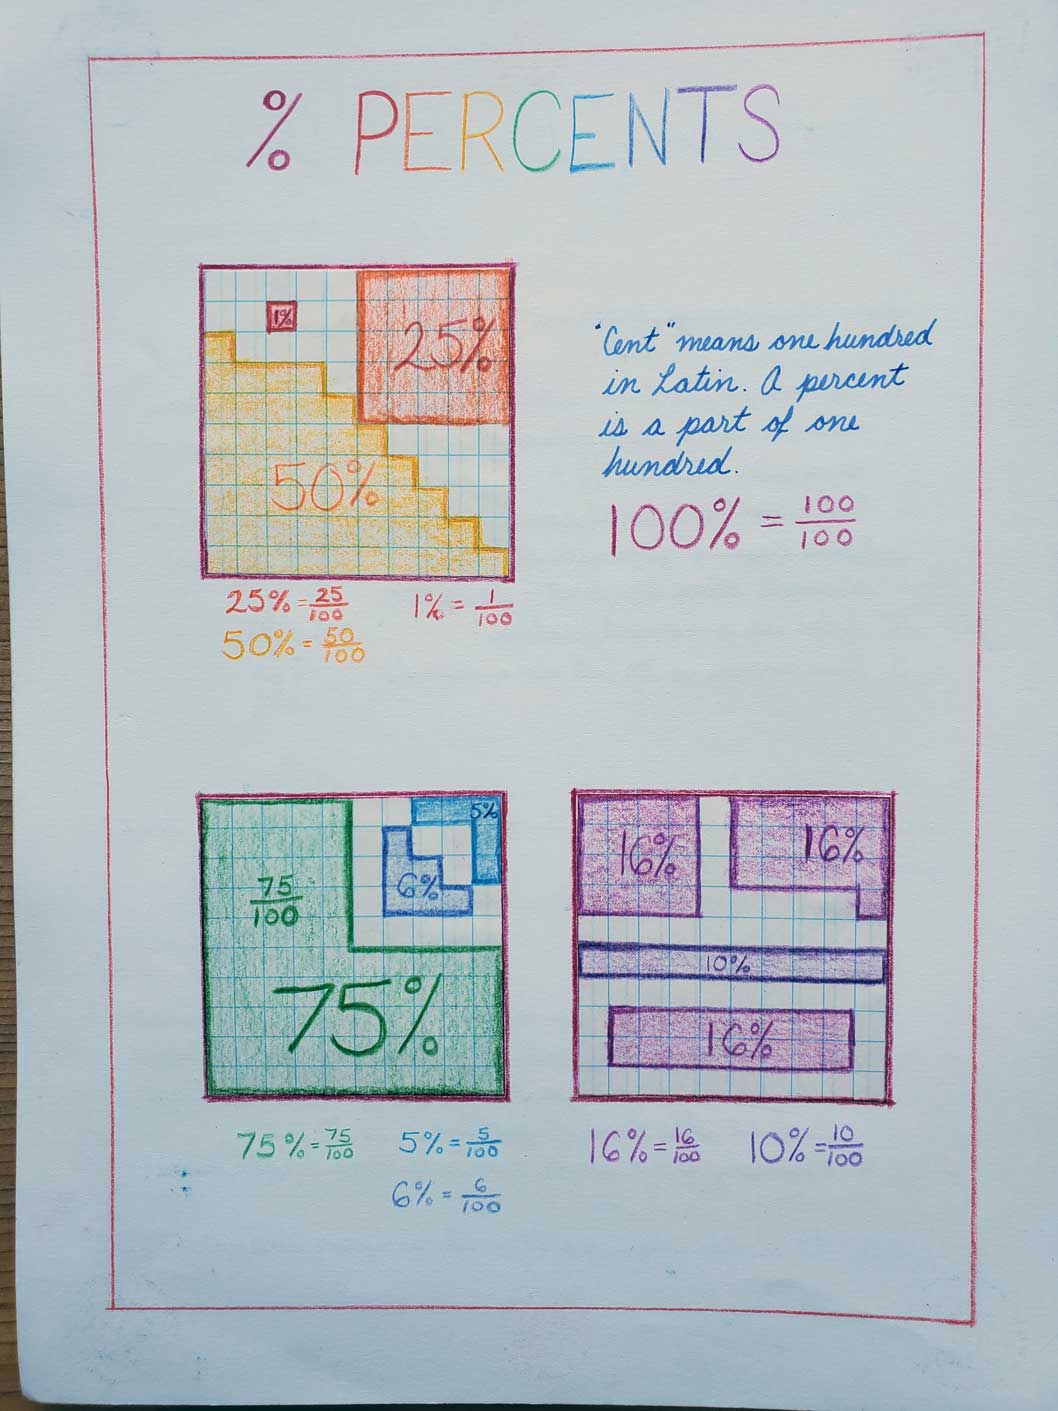 % PERCENTS
1%
25%
50%
"Cent" means one hundred
in Latin. A percent
is a part of one
hundred.
100% = 100/100
25% = 25/100
1% = 1/100
50% = 50/100
75/100
75%
5%
6%
16%
16%
10%
16%
75% = 75/100
5% = 5/100
6% = 6/100
16% = 16/100
10% = 10/100